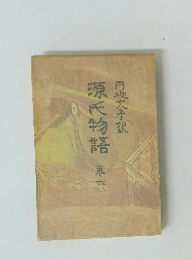 円地文子訳
源氏物語
巻六